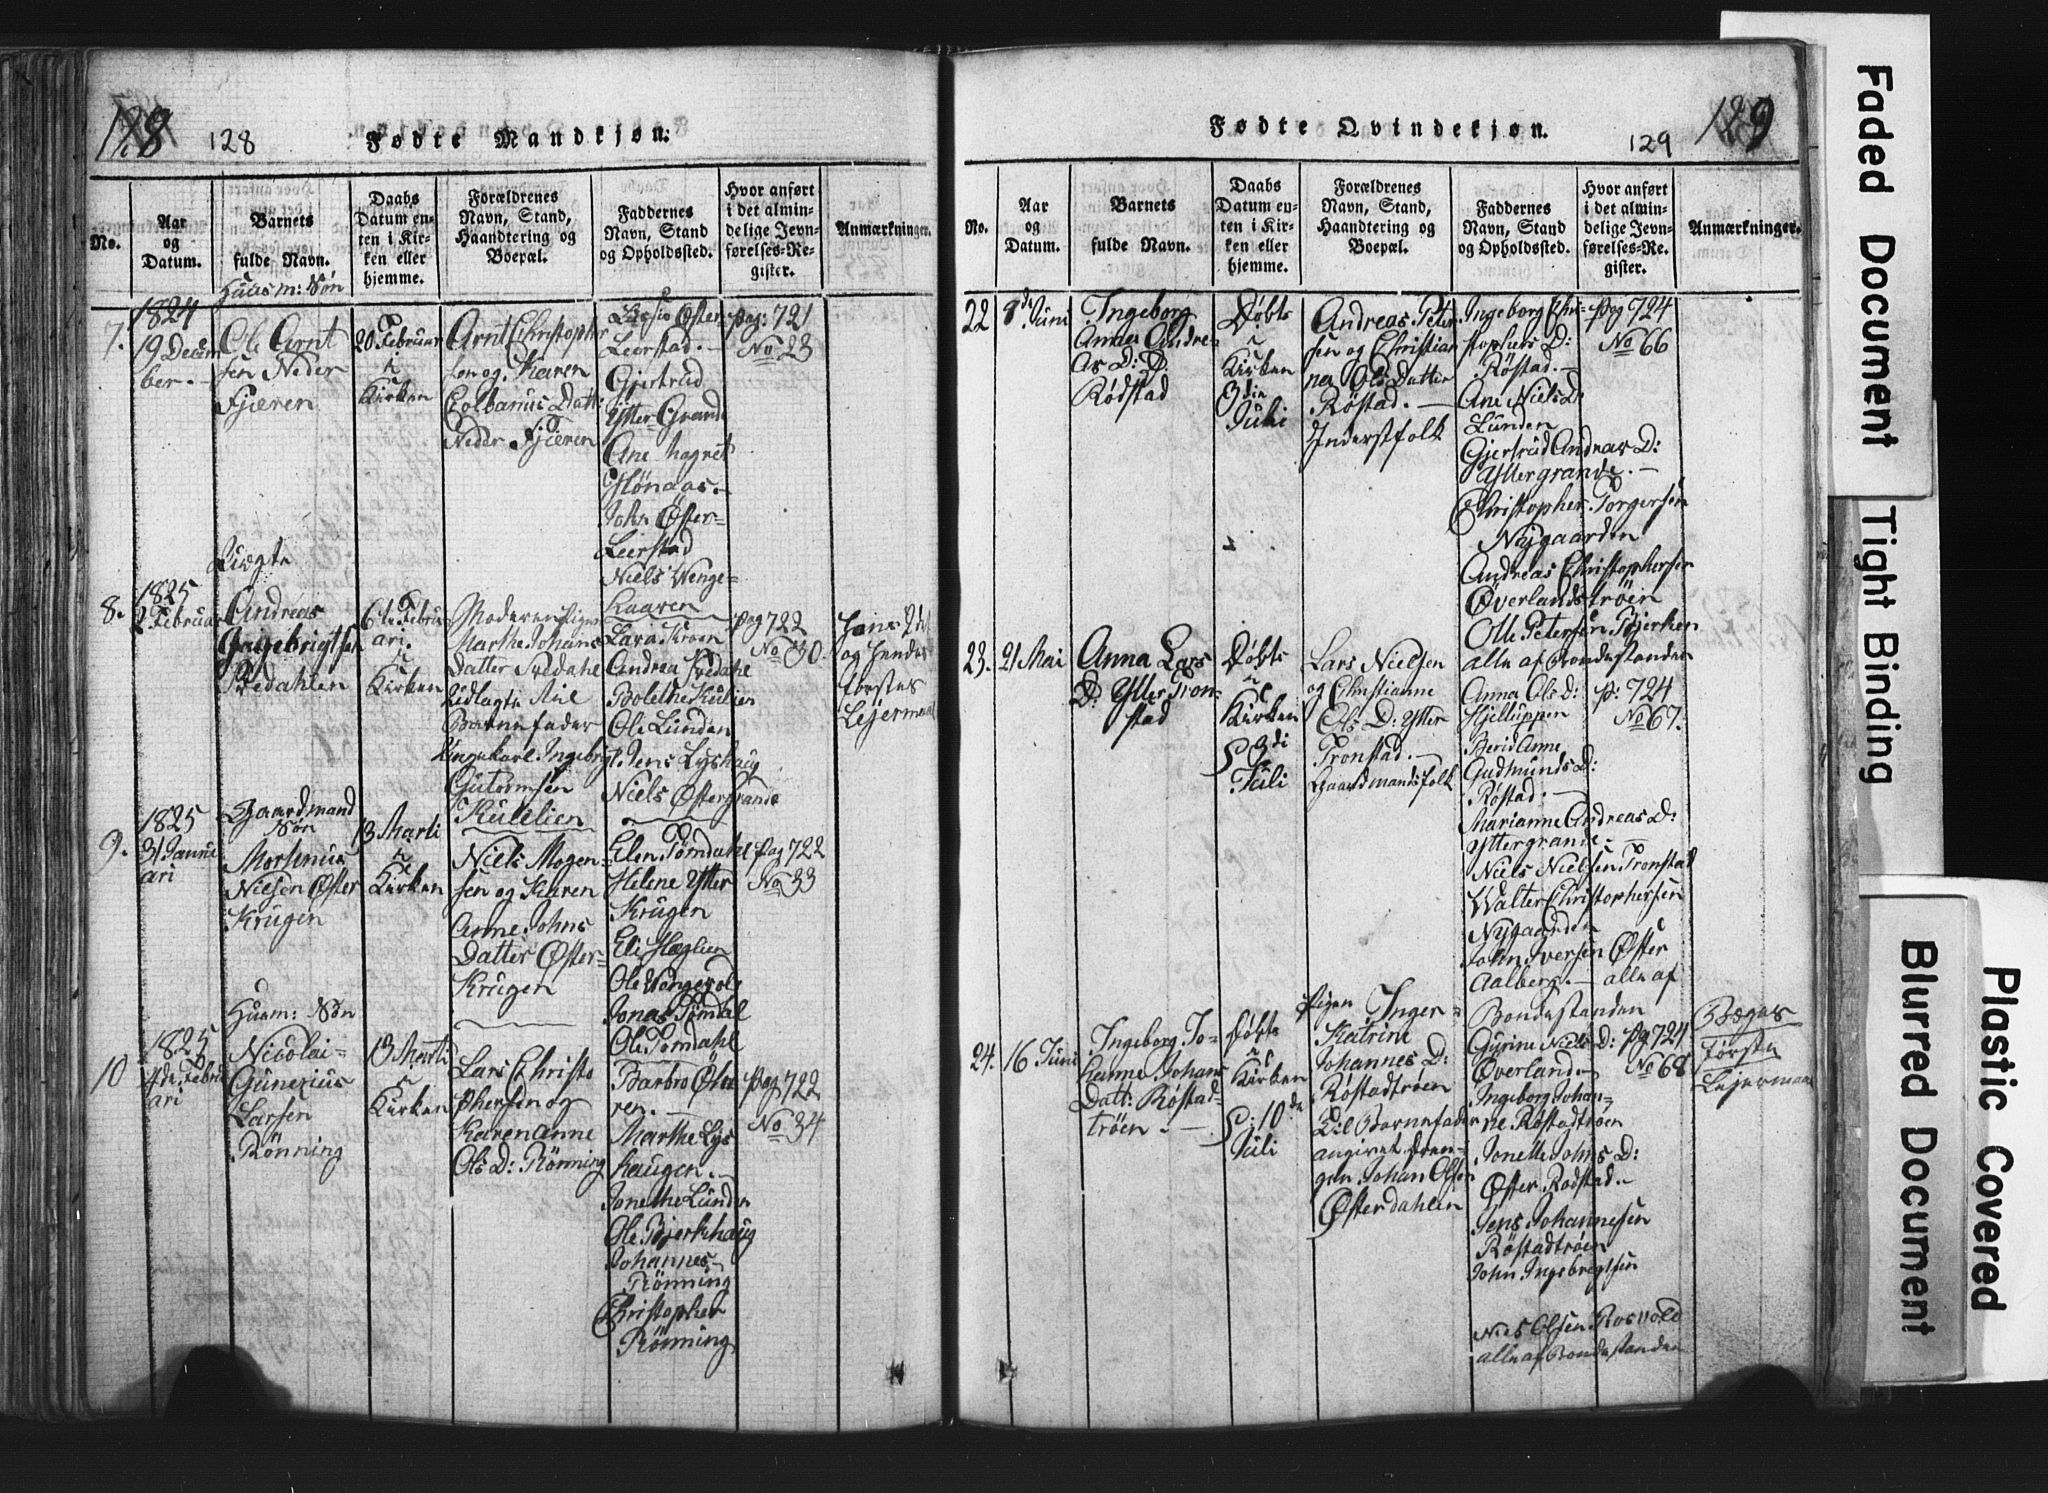 128
128
Fødte Mandkjøn:
No.
Aar
og
Datum.
Barnets
fulde Navn.
Daabs
Datum en-
ten i Kir-
ken eller
hjemme.
Forældrenes
Navn, Stand,
Haandtering og
Boepæl.
Faddernes
Navn, Stand
og Opholdssted.
Hvor anført
i det almin-
delige Jevn-
førelses-Re-
gister.
Anmærkninger.
7.
1824
19 Decem
ber.
Huusm: Søn
Ole Arnt
sen Neder
Fjæren
20 Februar
i
Kirken
Arnt Christopher
sen og Karen
Colbanus Datt:
Neder Fjæren
Øster
Leirstad.
Gjertrud
Ytter Grande
Ane Magret
John Øster-
Leirstad
Niels Wenge-
Kaaren
pag: 721
No 23
8.
1825
2 Februar
Uægte
Andreas
Ingebrigtsen
6te Febru
ari.
i
Kirken
Moderen Pigen
Marthe Johans
Datter
Udlagte til
Barnefader
Ungekarl Ingebrigt
Gutormsen
Kulslien
Lava Kroen
Andrea
Bolethe Kulslien
Ole Lunden
Jens Lyshaug
Niels Østergrande
pag 722
No 30.
Hans 2det
og hendes
første
Lejermaal
9.
1825
31 Janu
ari
Gaardmand
Søn
Mortinus
Nielsen Øster
Krugen
13 Marti
i
Kirken
Niels Mogen-
sen og Karen
Anne Johns
Datter Øster-
Krugen
Elen Tømdahl
Helene Ytter
Krugen
Eli Hæglien
Ole Wangevold
Jonas Tømdal
Ole Tømdahl
pag 722
No 33
10
1825
4de Febru
ari
Huusm: Søn
Nicolai
Gunerius
Larsen
Rönning
13 Marti
i
Kirken
Lars Christo
phersen og
Karen Anne
Ols D: Rönning
Barbro
ren.
Marthe Lys
haugen.
Jonethe Lunden
Ole Bjerkhaug
Johannes
Rönning
Christopher
Rönning
pag 722
No 34
Fødte Qvindekjøn.
129
129
No.
Aar
og
Datum.
Barnets
fulde Navn.
Daabs
Datum en-
ten i Kir-
ken eller
hjemme.
Forældrenes
Navn, Stand,
Haandtering og
Boepæl.
Faddernes
Navn, Stand
og Opholdssted.
Hvor anført
i det almin-
delige Jevn-
førelses-Re-
gister.
Anmærkninger.
22
8de Juni
Ingeborg
Anna Andre-
as D:
Rødstad
Døbt
i
Kirken
3die
Juli
Andreas Peter
sen og Christian
na Ols Datter
Röstad.
Inderstfolk
Ingeborg Chri-
stophers D:
Röstad.
Ane Niels D
Lunden
Gjertrud Andreas D:
Yttergrande.
Christopher Torgersen
Nygaarden
Andreas Christophersen
Överlandströen
Olle Petersen Bjerken
alle af Bondestanden
pag 724
No 66
23.
21 Mai
Anna Lars
D: Ytter Tron-
stad
Døbt
i
Kirken
d 3di
Juli
Lars Nielsen
og Christianne
Ols D: Ytter
Tronstad.
Gaardmandsfolk
Anna Ols D:
Hjelluppen
Berid Anne
Gudmunds D:
Röstad.
Marianne Andreas D:
Yttergrande
Niels Nielsen Tronstad
Walter Christophersen
Nygaarden
John Iversen Öster
Aalberg. alle af
Bondestanden
p: 724
No 67.
24.
16 Juni
Ingeborg Jo-
hanne Johans
Datt: Röstad-
tröen.
Døbt
i
Kirken
d: 10de
Juli
Pigen Inger
Katrine
Johannes D:
Röstadtröen
til Barnefader
angivet Dren-
gen Johan Olsen
Østerdahlen
Gurine Niels D:
Överland
Ingeborg Johan-
ne Röstadtröen
Jonette Johns D:
Öster Rodstad.
Jens Johannesen
Röstadtröen
John Ingebregtsen
Niels Olsen Rosvold
alle af Bondestanden
pg 724
No 68
Begges
første
Lejermaal
Faded Document
Tight Binding
Blurred Document
Plastic Covered